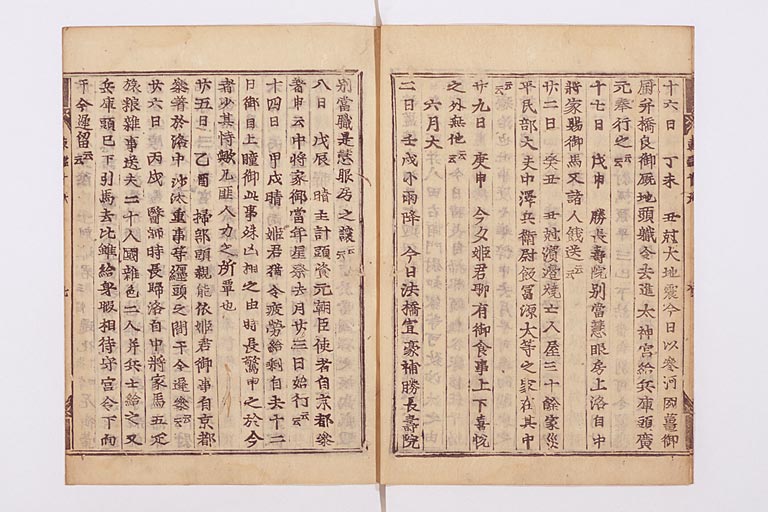 十六日 丁未 丑尅大地震今日以参河國薑御
厨并橋良御厩地頭職令去進太神宮給兵庫頭廣
元奉行之云云
十七日 戊申 勝長壽院別當慧眼房上洛自中
將家賜御馬又諸人餞送云云
廿二日 癸丑 丑尅濱邊燒亡人屋三十餘家災
平民部大夫中澤兵衛尉飯冨源太等之家在其中
云云
廿九日 庚申 今夕姬君聊有御食事上下喜悅
之外無他云云
六月大
二日 壬戌 小雨降 今日法橋寛豪補勝長壽院
別當職是慧眼房之讓云云
八日 戊辰 晴 主計頭資元朝臣使者自京都參
著申云中將家御當年星祭去月廿三日始行云云
十四日 甲戌 晴 姬君猶令疲勞給剩自去十二
日御目上腫御此事殊凶相之由時長驚申之於今
者少其恃歟凡匪人力之所覃也
廿五日 乙酉 掃部頭親能依姬君御事自京都
參著於洛中沙汰重事等經頭之間于今遲參云云
廿六日 丙戌 醫師時長歸洛自中將家馬五疋
旅粮雜事送夫二十人國雜色二人并兵士給之又
兵庫頭已下引馬去比雖給身暇相待守宮令下向
于今逗留云云